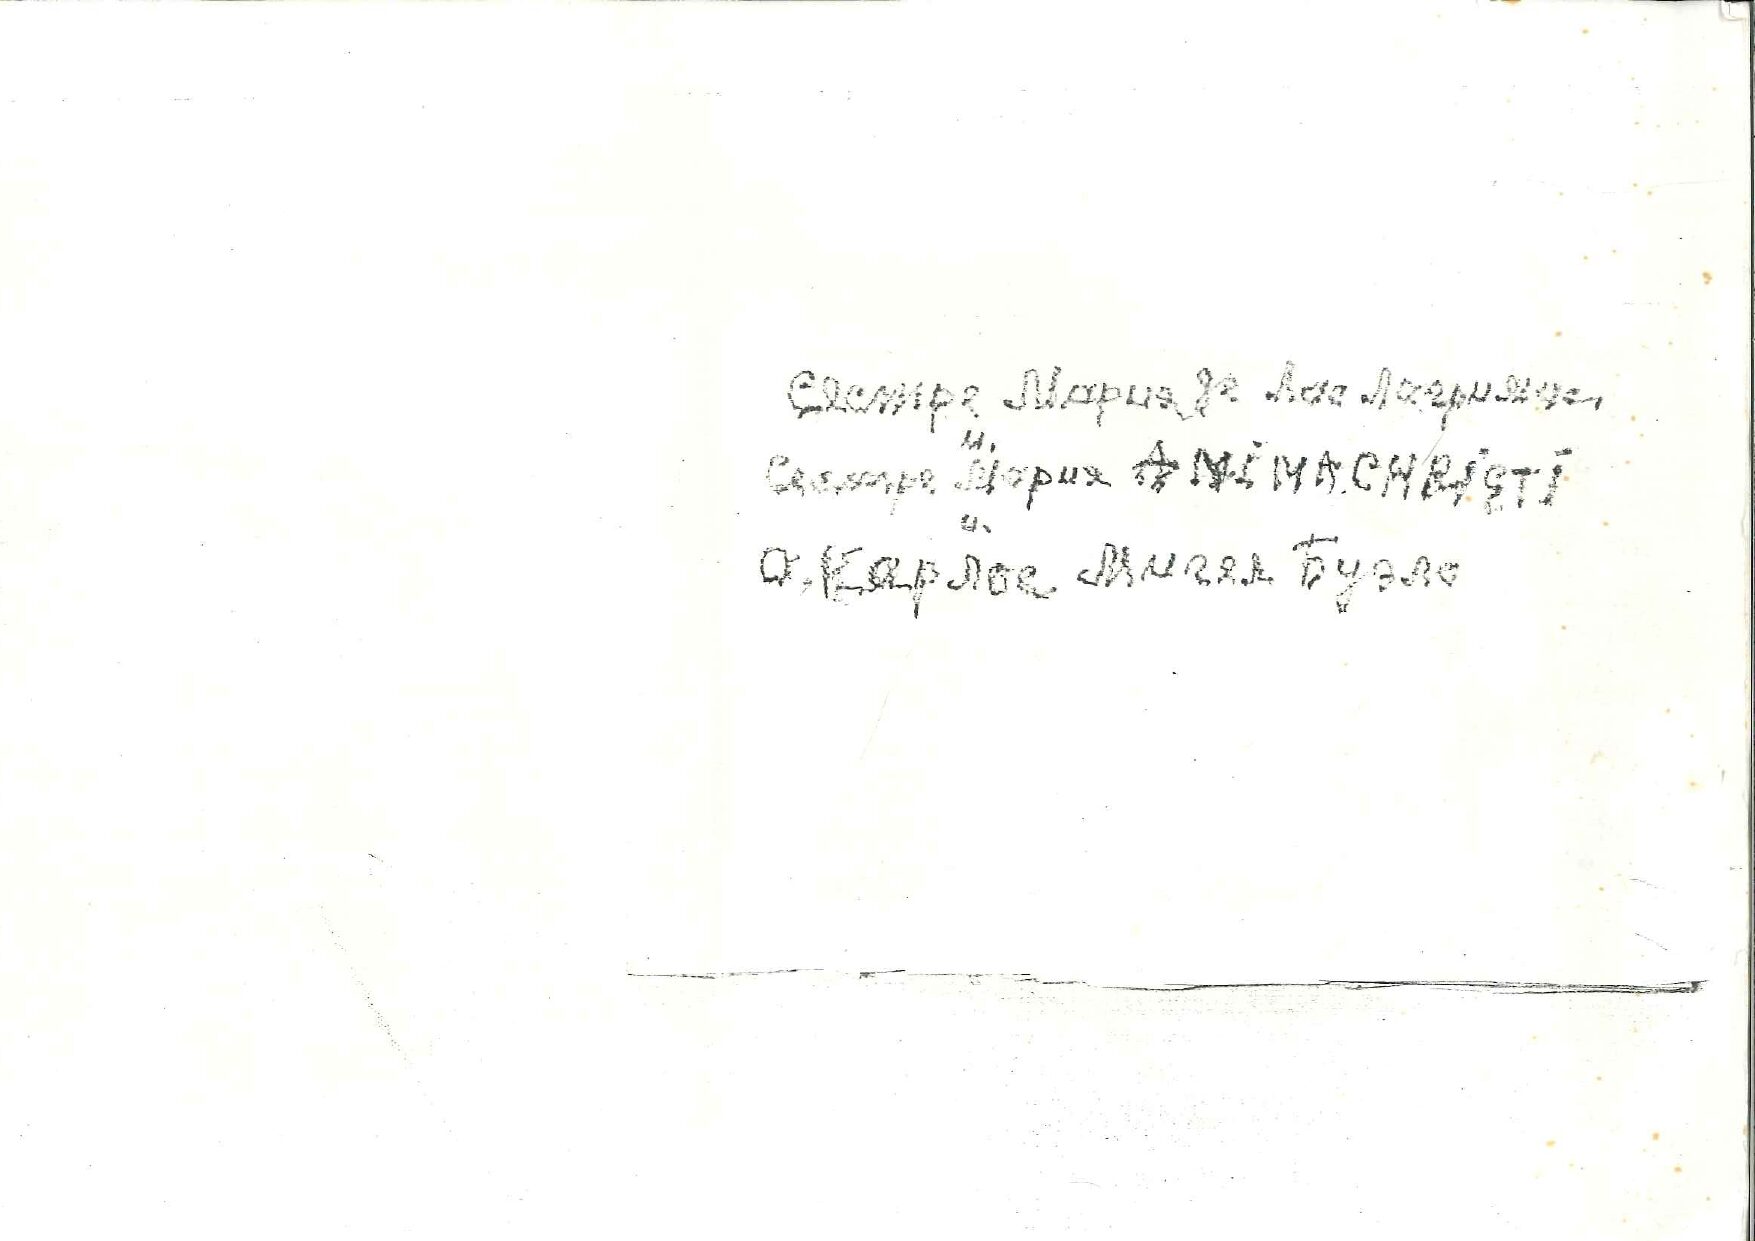 Сестре Мария де Лос Лагримас,
и.
Сестре Мария ANiMA.CHRiSTi
и.
О. Карлос Мигел Буэло